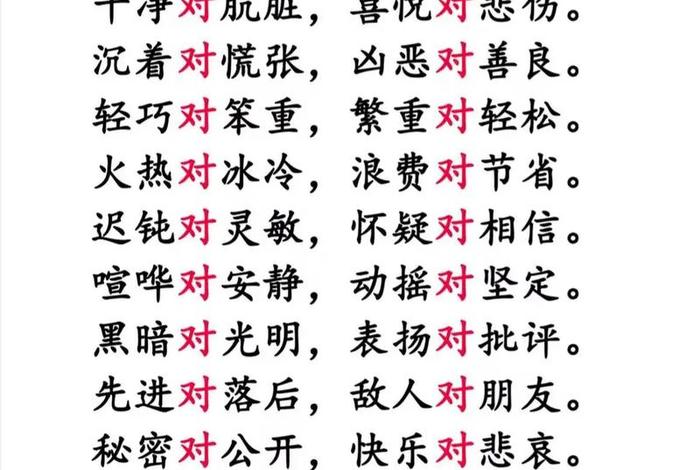 干净对肮脏，喜悦对悲伤。
沉着对慌张，凶恶对善良。
轻巧对笨重，繁重对轻松。
火热对冰冷，浪费对节省。
迟钝对灵敏，怀疑对相信。
喧哗对安静，动摇对坚定。
黑暗对光明，表扬对批评。
先进对落后，敌人对朋友。
秘密对公开，快乐对悲哀。